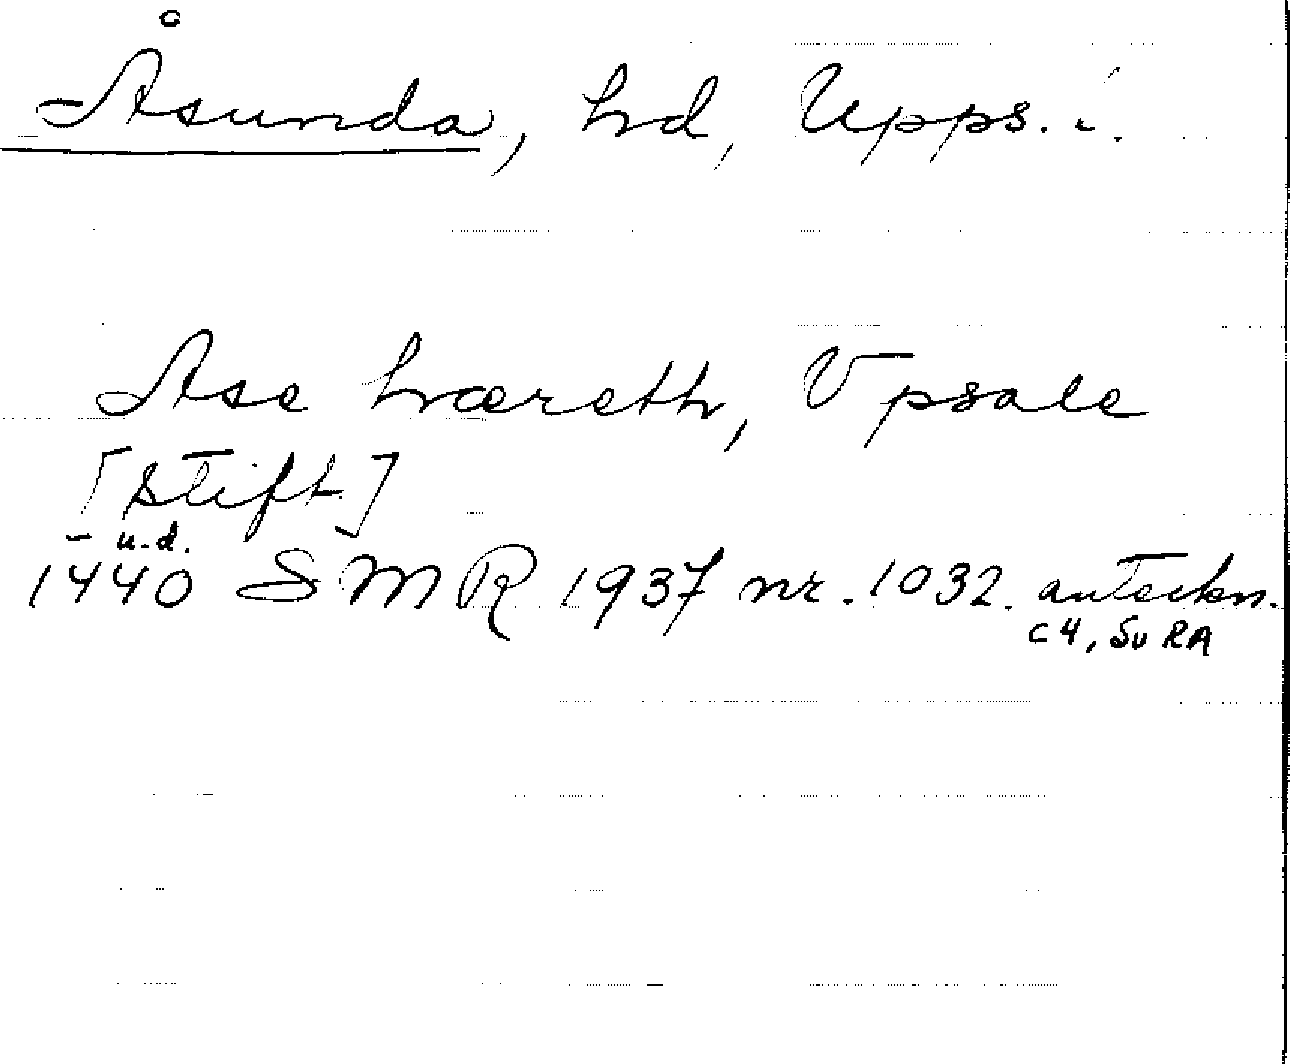 Åsunda, hd, Upps. l.
Ase hæreth, Vpsale
[stift]
– u.d.
1440 SMR 1937 nr. 1032. anteckn.
C4, Sv RA